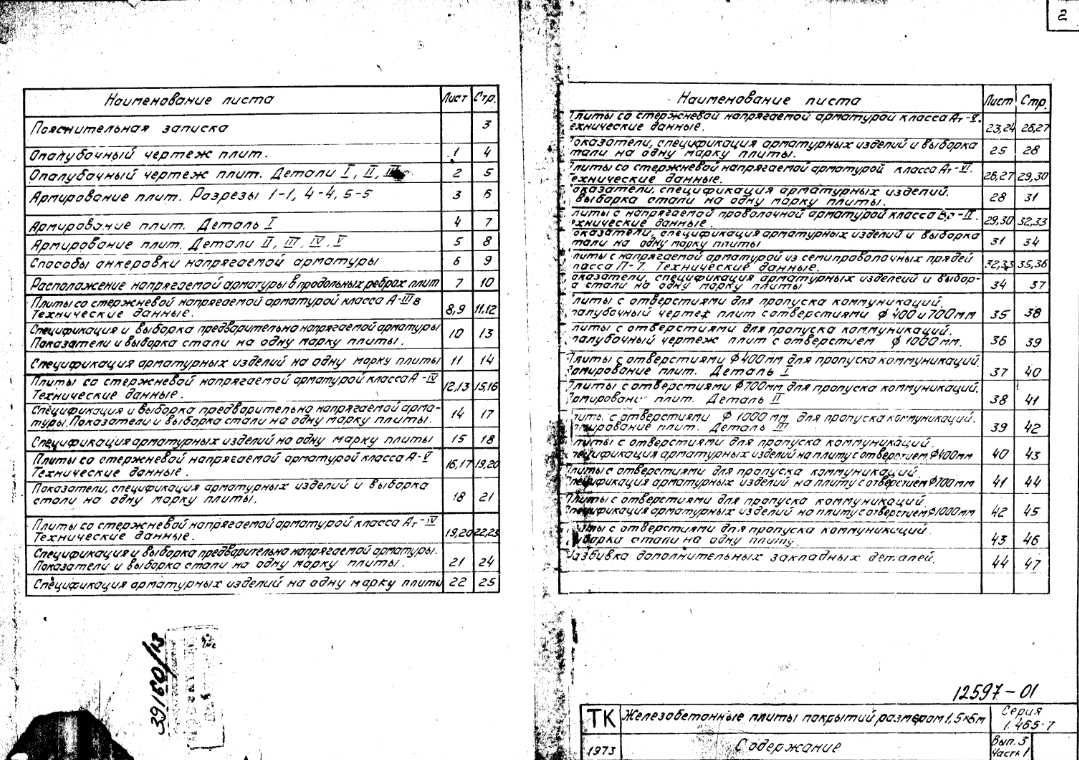 2
Наименование листа Лист Стр.
Пояснительная записка 3
Опалубочный чертеж плит. 1 4
Опалубочный чертеж плит. Детали I, II, III 2 5
Армирование плит. Разрезы 1-1, 4-4, 5-5 3 6
Армирование плит. Деталь I 4 7
Армирование плит. Детали II, III, IV, V 5 8
Способы анкеровки напрягаемой арматуры 6 9
Расположение напрягаемой арматуры в продольных ребрах плит 7 10
Плиты со стержневой напрягаемой арматурой класса А-IIIв
Технические данные. 8,9 11,12
Спецификация и выборка предварительно напрягаемой арматуры
Показатели и выборка стали на одну марку плиты. 10 13
Спецификация арматурных изделий на одну марку плиты 11 14
Плиты со стержневой напрягаемой арматурой класса А-IV
Технические данные. 12,13 15,16
Спецификация и выборка предварительно напрягаемой арма-
туры. Показатели и выборка стали на одну марку плиты. 14 17
Спецификация арматурных изделий на одну марку плиты 15 18
Плиты со стержневой напрягаемой арматурой класса А-V
Технические данные. 16,17 19,20
Показатели, спецификация арматурных изделий и выборка
стали на одну марку плиты. 18 21
Плиты со стержневой напрягаемой арматурой класса Ат-IV
Технические данные. 19,20 22,23
Спецификация и выборка предварительно напрягаемой арматуры.
Показатели и выборка стали на одну марку плиты. 21 24
Спецификация арматурных изделий на одну марку плиты 22 25
39160/13
Наименование листа Лист Стр.
Плиты со стержневой напрягаемой арматурой класса Ат-V.
ехнические данные. 23,24 26,27
оказатели, спецификация арматурных изделий и выборка
тали на одну марку плиты. 25 28
Плиты со стержневой напрягаемой арматурой класса Ат-VI.
ехнические данные. 26,27 29,30
оказатели, спецификация арматурных изделий.
выборка стали на одну марку плиты. 28 31
литы с напрягаемой проволочной арматурой класса Вр-II.
ехнические данные. 29,30 32,33
оказатели, спецификация арматурных изделий и выборка
тали на одну марку плиты 31 34
литы с напрягаемой арматурой из семипроволочных прядей
ласса П-7. Технические данные. 32,33 35,36
оказатели, спецификация арматурных изделий и выбор-
а стали на одну марку плиты 34 37
литы с отверстиями для пропуска коммуникаций.
палубочный чертеж плит с отверстиями ϕ 400 и 700мм 35 38
литы с отверстиями для пропуска коммуникаций.
палубочный чертеж плит с отверстием ϕ 1000мм. 36 39
Плиты с отверстиями ϕ 400мм для пропуска коммуникаций.
Армирование плит. Деталь I 37 40
Плиты с отверстиями ϕ 700мм для пропуска коммуникаций.
Армирование плит. Деталь II 38 41
литы с отверстиями ϕ 1000мм для пропуска коммуникаций.
рмирование плит. Деталь III 39 42
Плиты с отверстиями для пропуска коммуникаций.
пецификация арматурных изделий на плиту с отверстием ϕ400мм 40 43
Плиты с отверстиями для пропуска коммуникаций.
пецификация арматурных изделий на плиту с отверстием ϕ700мм 41 44
Плиты с отверстиями для пропуска коммуникаций
пецификация арматурных изделий на плиту с отверстием ϕ1000мм 42 45
Плиты с отверстиями для пропуска коммуникаций
Выборка стали на одну плиту. 43 46
Разбивка дополнительных закладных деталей. 44 47
12597-01
ТК Железобетонные плиты покрытий размером 1,5×6м Серия
1.465-7
1973 Содержание Вып.3
Часть 1